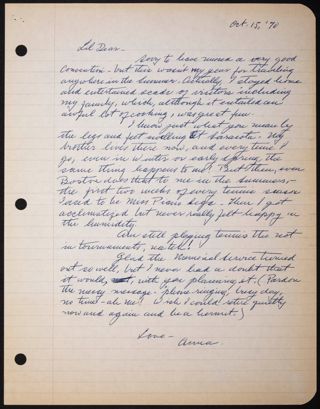 Oct 15, '70
Lil Dear -
Sorry to have missed a very good
Convention - but this wasn't my year for traveling
anywhere in the summer. Actually, I stayed home
and entertained scads of visitors including
my family, which, although it entailed an
awful lot of cooking, was great fun.
I know just what you mean by
the legs and feet swelling at Sarasota. My
brother lives there now, and every time I
go, even in winter or early spring, the
same thing happens to me! But then, even
Boston does that to me in the summers -
the first two weeks of every tennis season
I used to be Miss Piano Legs. Then I got
acclimatized but never really felt happy in
the humidity.
Am still playing tennis tho not
in tournaments, natch!
Glad the Memorial Service turned
out so well, but I never had a doubt that
it would, with you planning it. (Pardon
the messy message - phone ringing, busy day,
no time - ah me! Wish I could retire quietly
now and again and be a hermit)
Love -
Anna